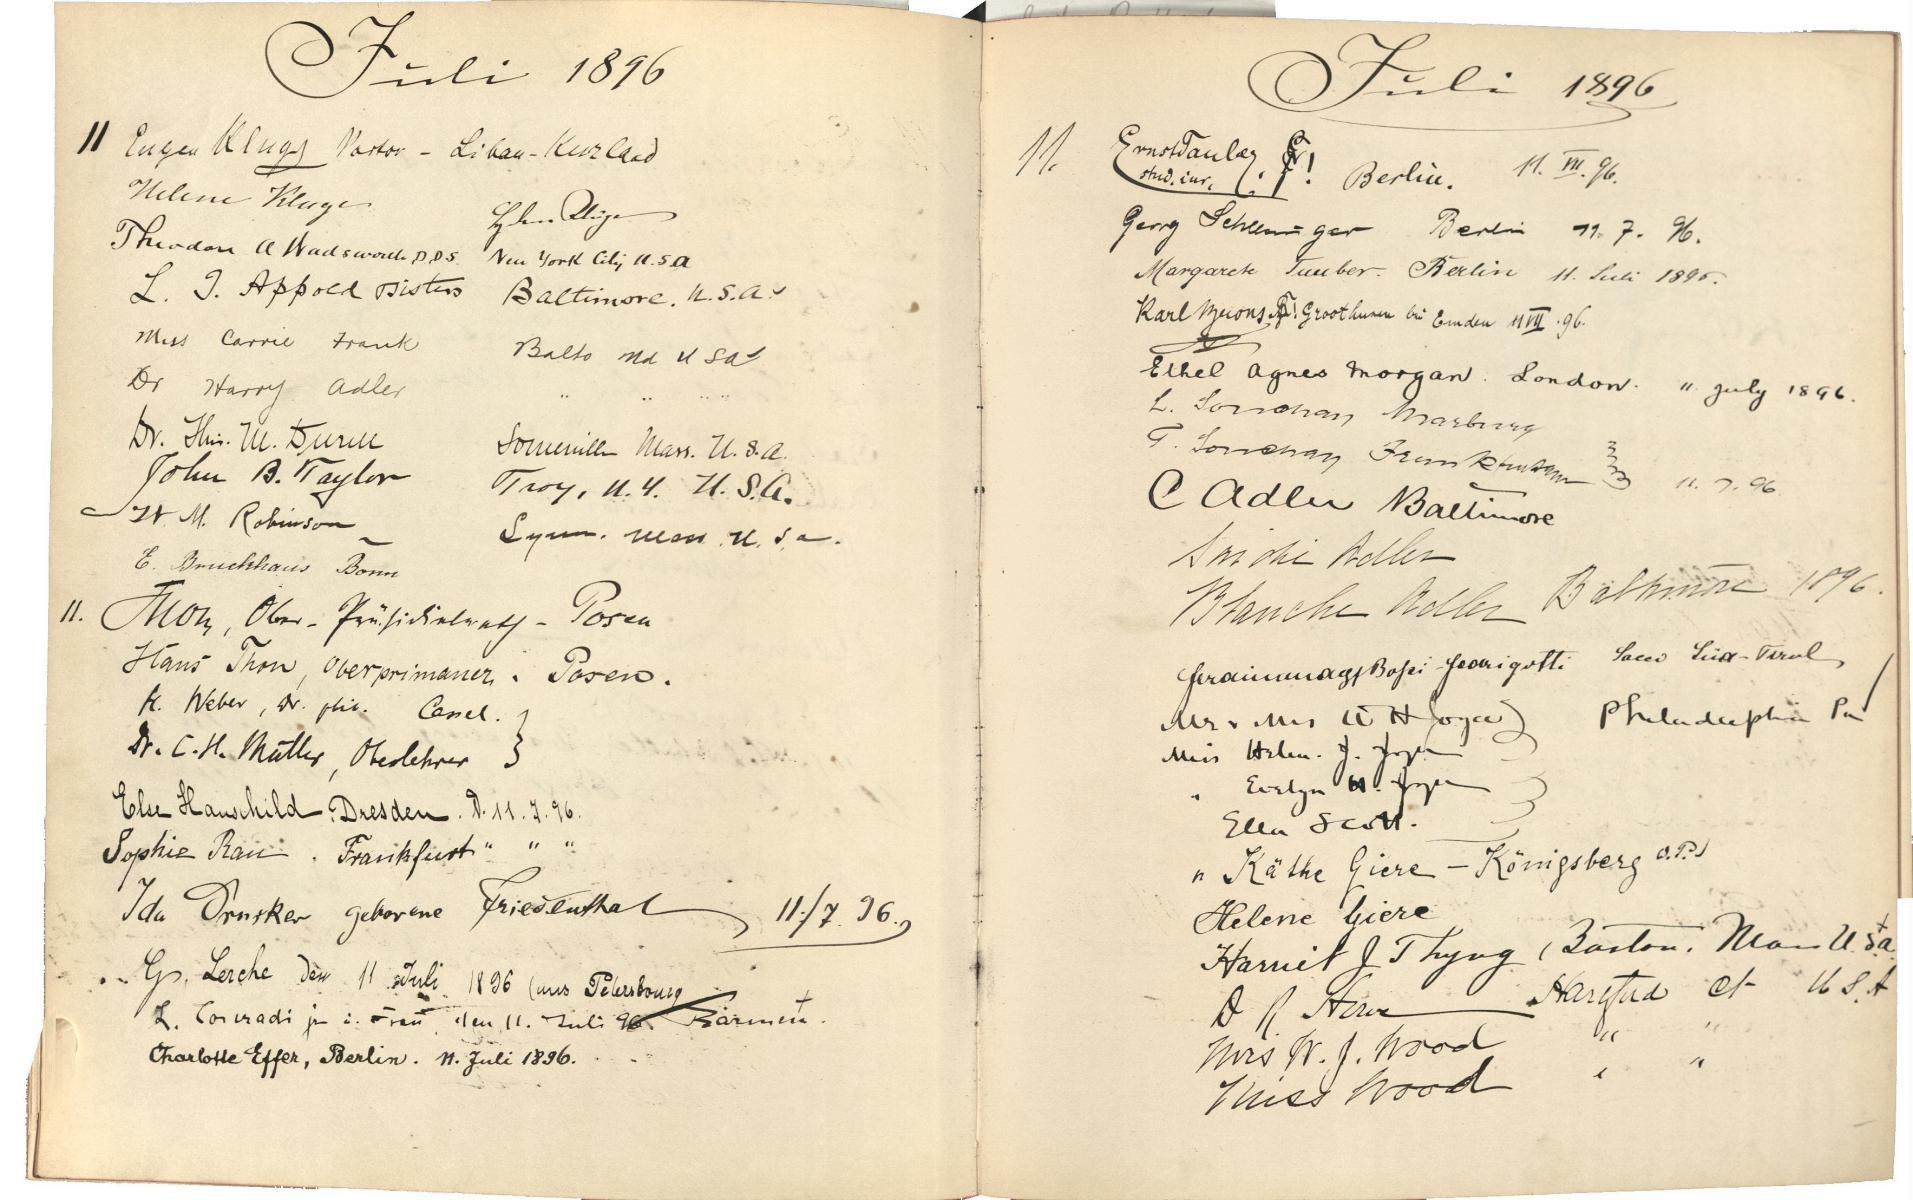 Juli 1896
11 Eugen Kluge Pastor - Libau - Kurland
Helene Kluge
Theodore A Wadsworth D.D.S. New York City U.S.A
L. J. Appold Sisters Baltimore. U.S.A.
Miss Carrie Frank Balto Md U S A
Dr Harry Adler " " " "
Dr. M. Somerville Mass. U.S.A.
John B. Taylor Troy, N.Y. U.S.A.
M. Robinson Lynn. Mass. U.S.A.
E. Bruckhaus Bonn
11. Thon, Ober-Präsidialrath - Posen
Hans Thon, Oberprimaner. Posen.
K. Weber, Dr. phil. Cassel.
Dr. C. H. Müller, Oberlehrer
Else Hauschild. Dresden. D. 11. 7. 96.
Sophie Rau. Frankfurt " " "
Ida geborene Friedenthal 11./7. 96.
G. Lerche den 11 Juli 1896 (aus Petersbourg
L. Conradi jr u. Frau den 11. Juli 96 Barmen.
Charlotte Effer, Berlin. 11. Juli 1896.
Juli 1896
11. Ernst Berlin. 11. VII. 96.
stud. iur.
Georg Berlin 11. 7. 96.
Margarete Tauber. Berlin 11. Juli 1896.
Karl Groothusen bei Emden 11 VII. 96.
Ethel Agnes Morgan. London. 11 July 1896.
L. Marburg
T. 11. 7. 96
C Adler Baltimore
Adler
Blanche Adler Baltimore 1896.
Bossi-Fedrigotti Sacco Süd-Tirol
Mr & Mrs W H Joyce Philadelphia Pa
Miss Helen. J. Joyce
" Evelyn Joyce
Ella Scott.
" Käthe Giere - Königsberg O.P.
Helene Giere
Harriet J Thyng, Boston. Mass U.S.A.
D R Howe Hartford Ct U S A
Mrs W. J. Wood " "
Miss Wood " "